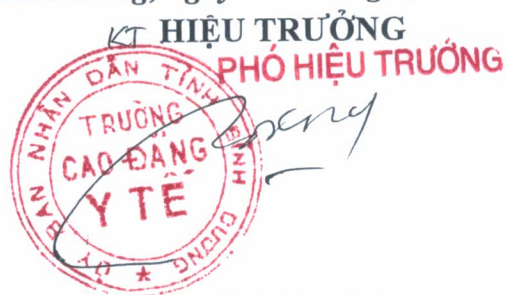 KT HIỆU TRƯỞNG
PHÓ HIỆU TRƯỞNG
ỦY BAN NHÂN DÂN TỈNH BÌNH DƯƠNG
TRƯỜNG
CAO ĐẲNG
Y TẾ